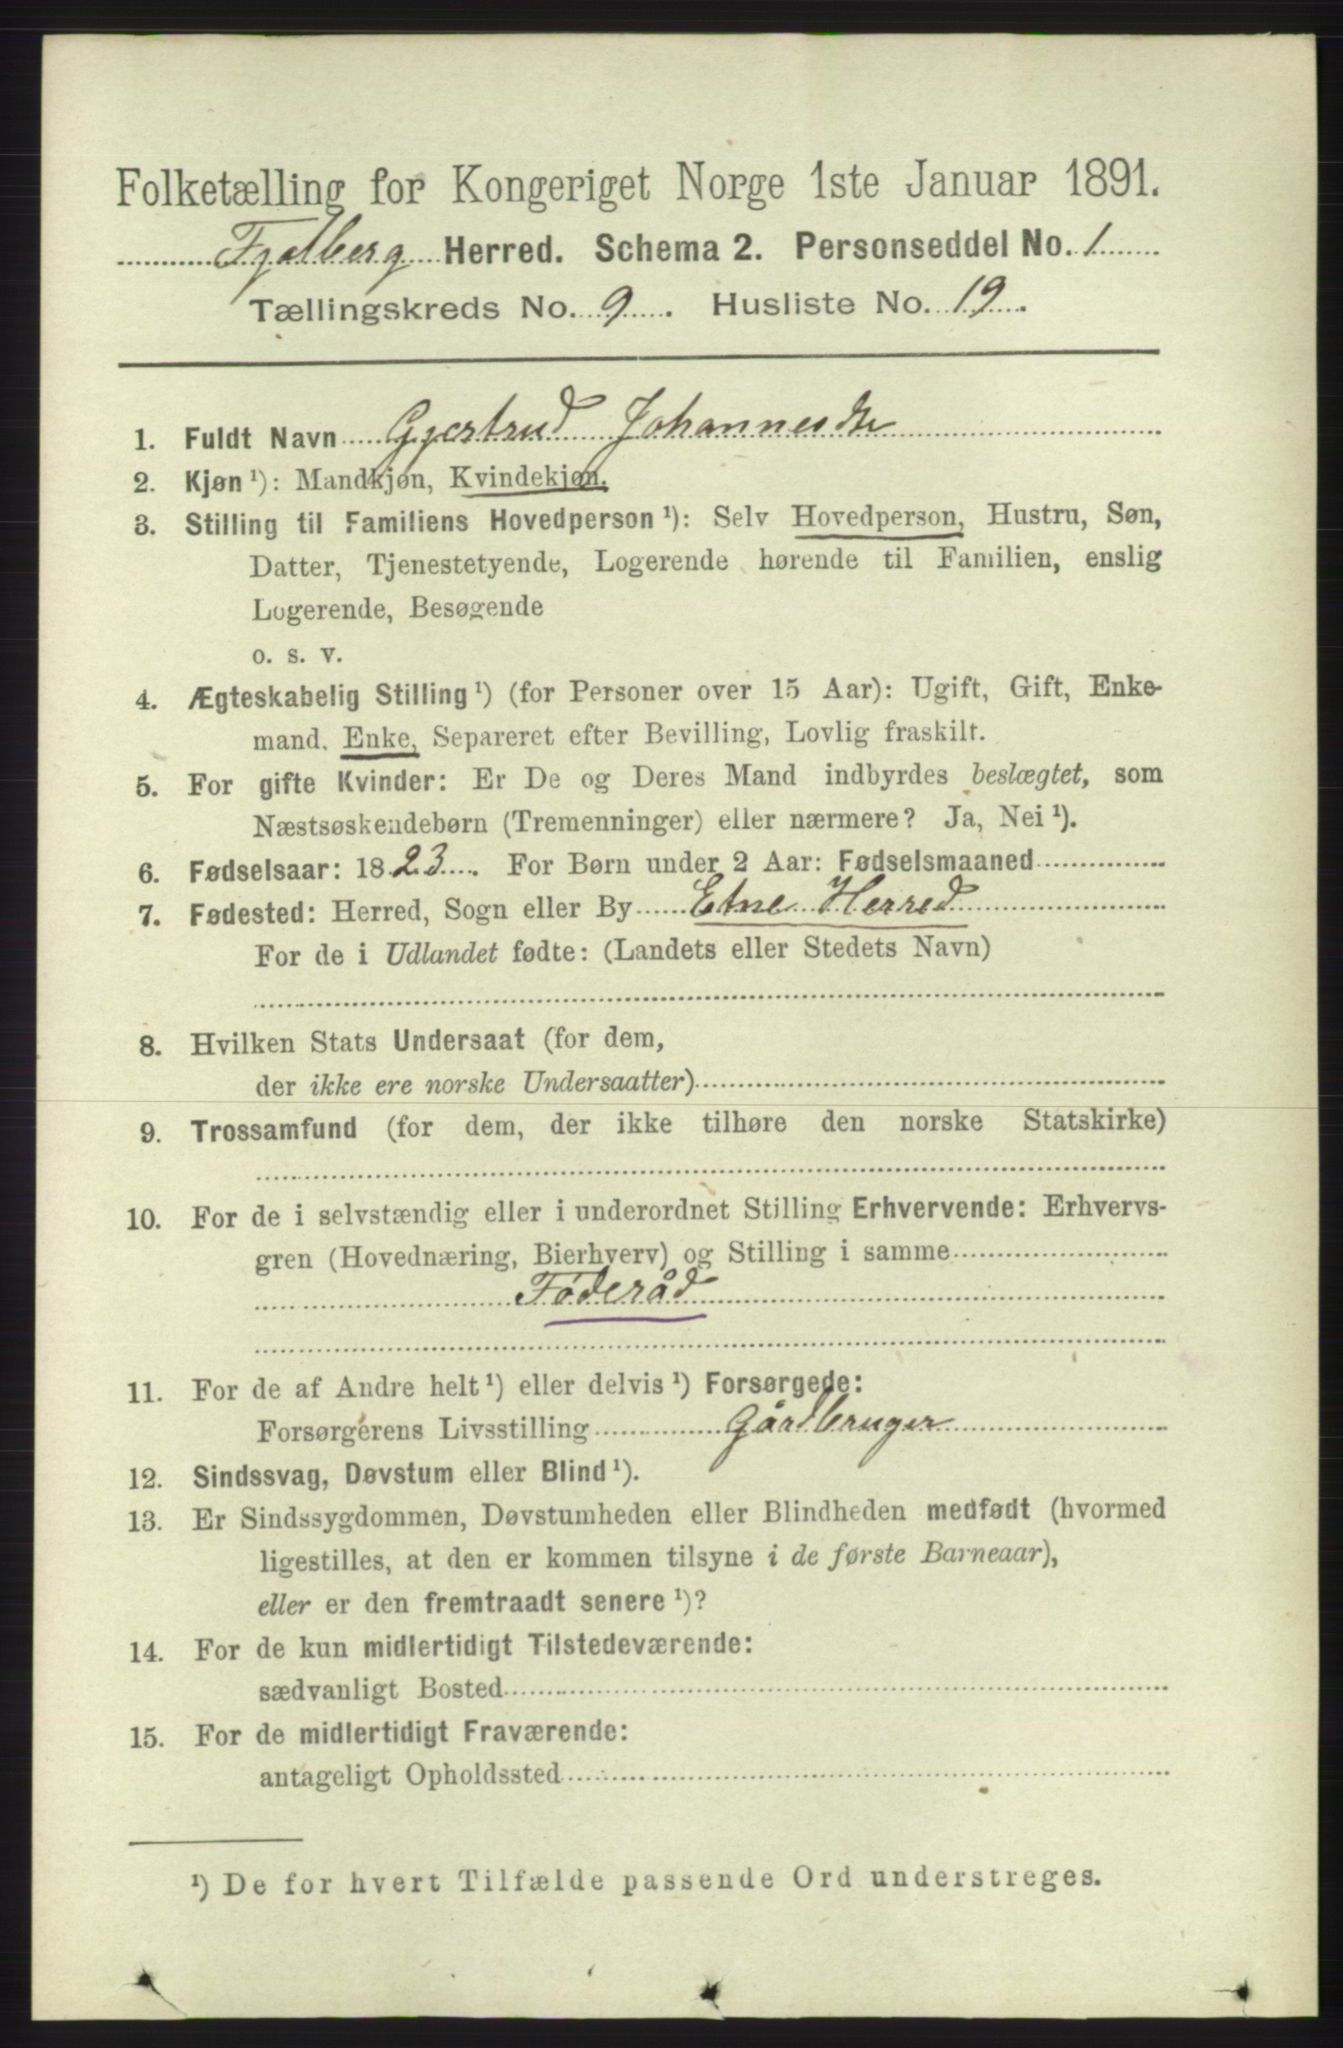 Folketælling for Kongeriget Norge 1ste Januar 1891.
Fjelberg Herred. Schema 2. Personseddel No. 1
Tællingskreds No. 9. Husliste No. 19.
1. Fuldt Navn Gjertrud Johannesdtr
2. Kjøn ¹): Mandkjøn, Kvindekjøn.
3. Stilling til Familiens Hovedperson ¹): Selv Hovedperson, Hustru, Søn,
Datter, Tjenestetyende, Logerende hørende til Familien, enslig
Logerende, Besøgende
o. s. v.
4. Ægteskabelig Stilling ¹) (for Personer over 15 Aar): Ugift, Gift, Enke-
mand, Enke, Separeret efter Bevilling, Lovlig fraskilt.
5. For gifte Kvinder: Er De og Deres Mand indbyrdes beslægtet, som
Næstsøskendebørn (Tremenninger) eller nærmere? Ja, Nei ¹).
6. Fødselsaar: 1823. For Børn under 2 Aar: Fødselsmaaned
7. Fødested: Herred, Sogn eller By Etne Herred
For de i Udlandet fødte: (Landets eller Stedets Navn)
8. Hvilken Stats Undersaat (for dem,
der ikke ere norske Undersaatter)
9. Trossamfund (for dem, der ikke tilhøre den norske Statskirke)
10. For de i selvstændig eller i underordnet Stilling Erhvervende: Erhvervs-
gren (Hovednæring, Bierhverv) og Stilling i samme
Føderåd
11. For de af Andre helt ¹) eller delvis ¹) Forsørgede:
Forsørgerens Livsstilling Gårdbruger
12. Sindssvag, Døvstum eller Blind ¹).
13. Er Sindssygdommen, Døvstumheden eller Blindheden medfødt (hvormed
ligestilles, at den er kommen tilsyne i de første Barneaar),
eller er den fremtraadt senere ¹)?
14. For de kun midlertidigt Tilstedeværende:
sædvanligt Bosted
15. For de midlertidigt Fraværende:
antageligt Opholdssted
¹) De for hvert Tilfælde passende Ord understreges.